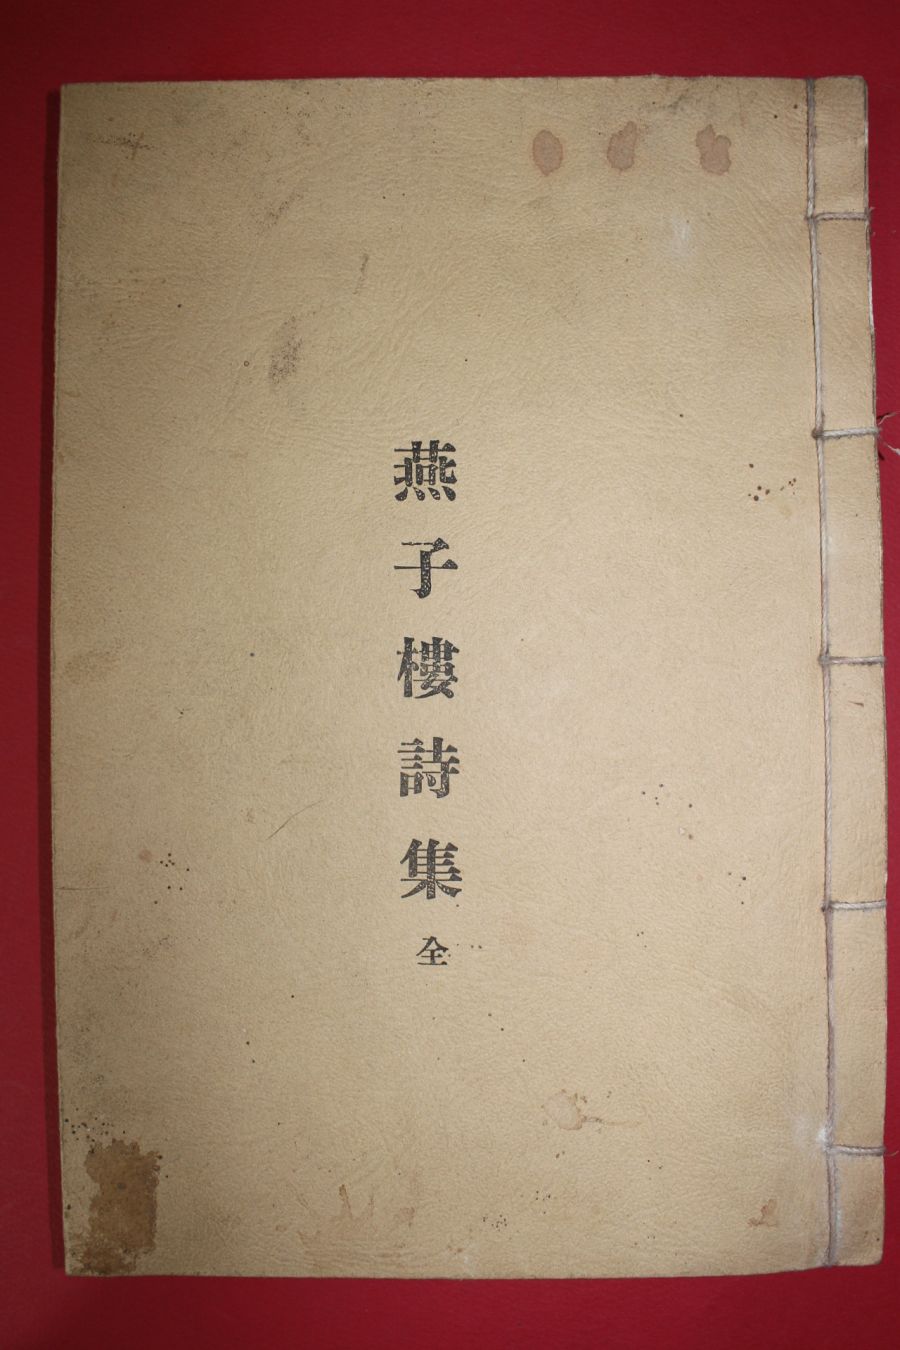 燕子樓詩集全